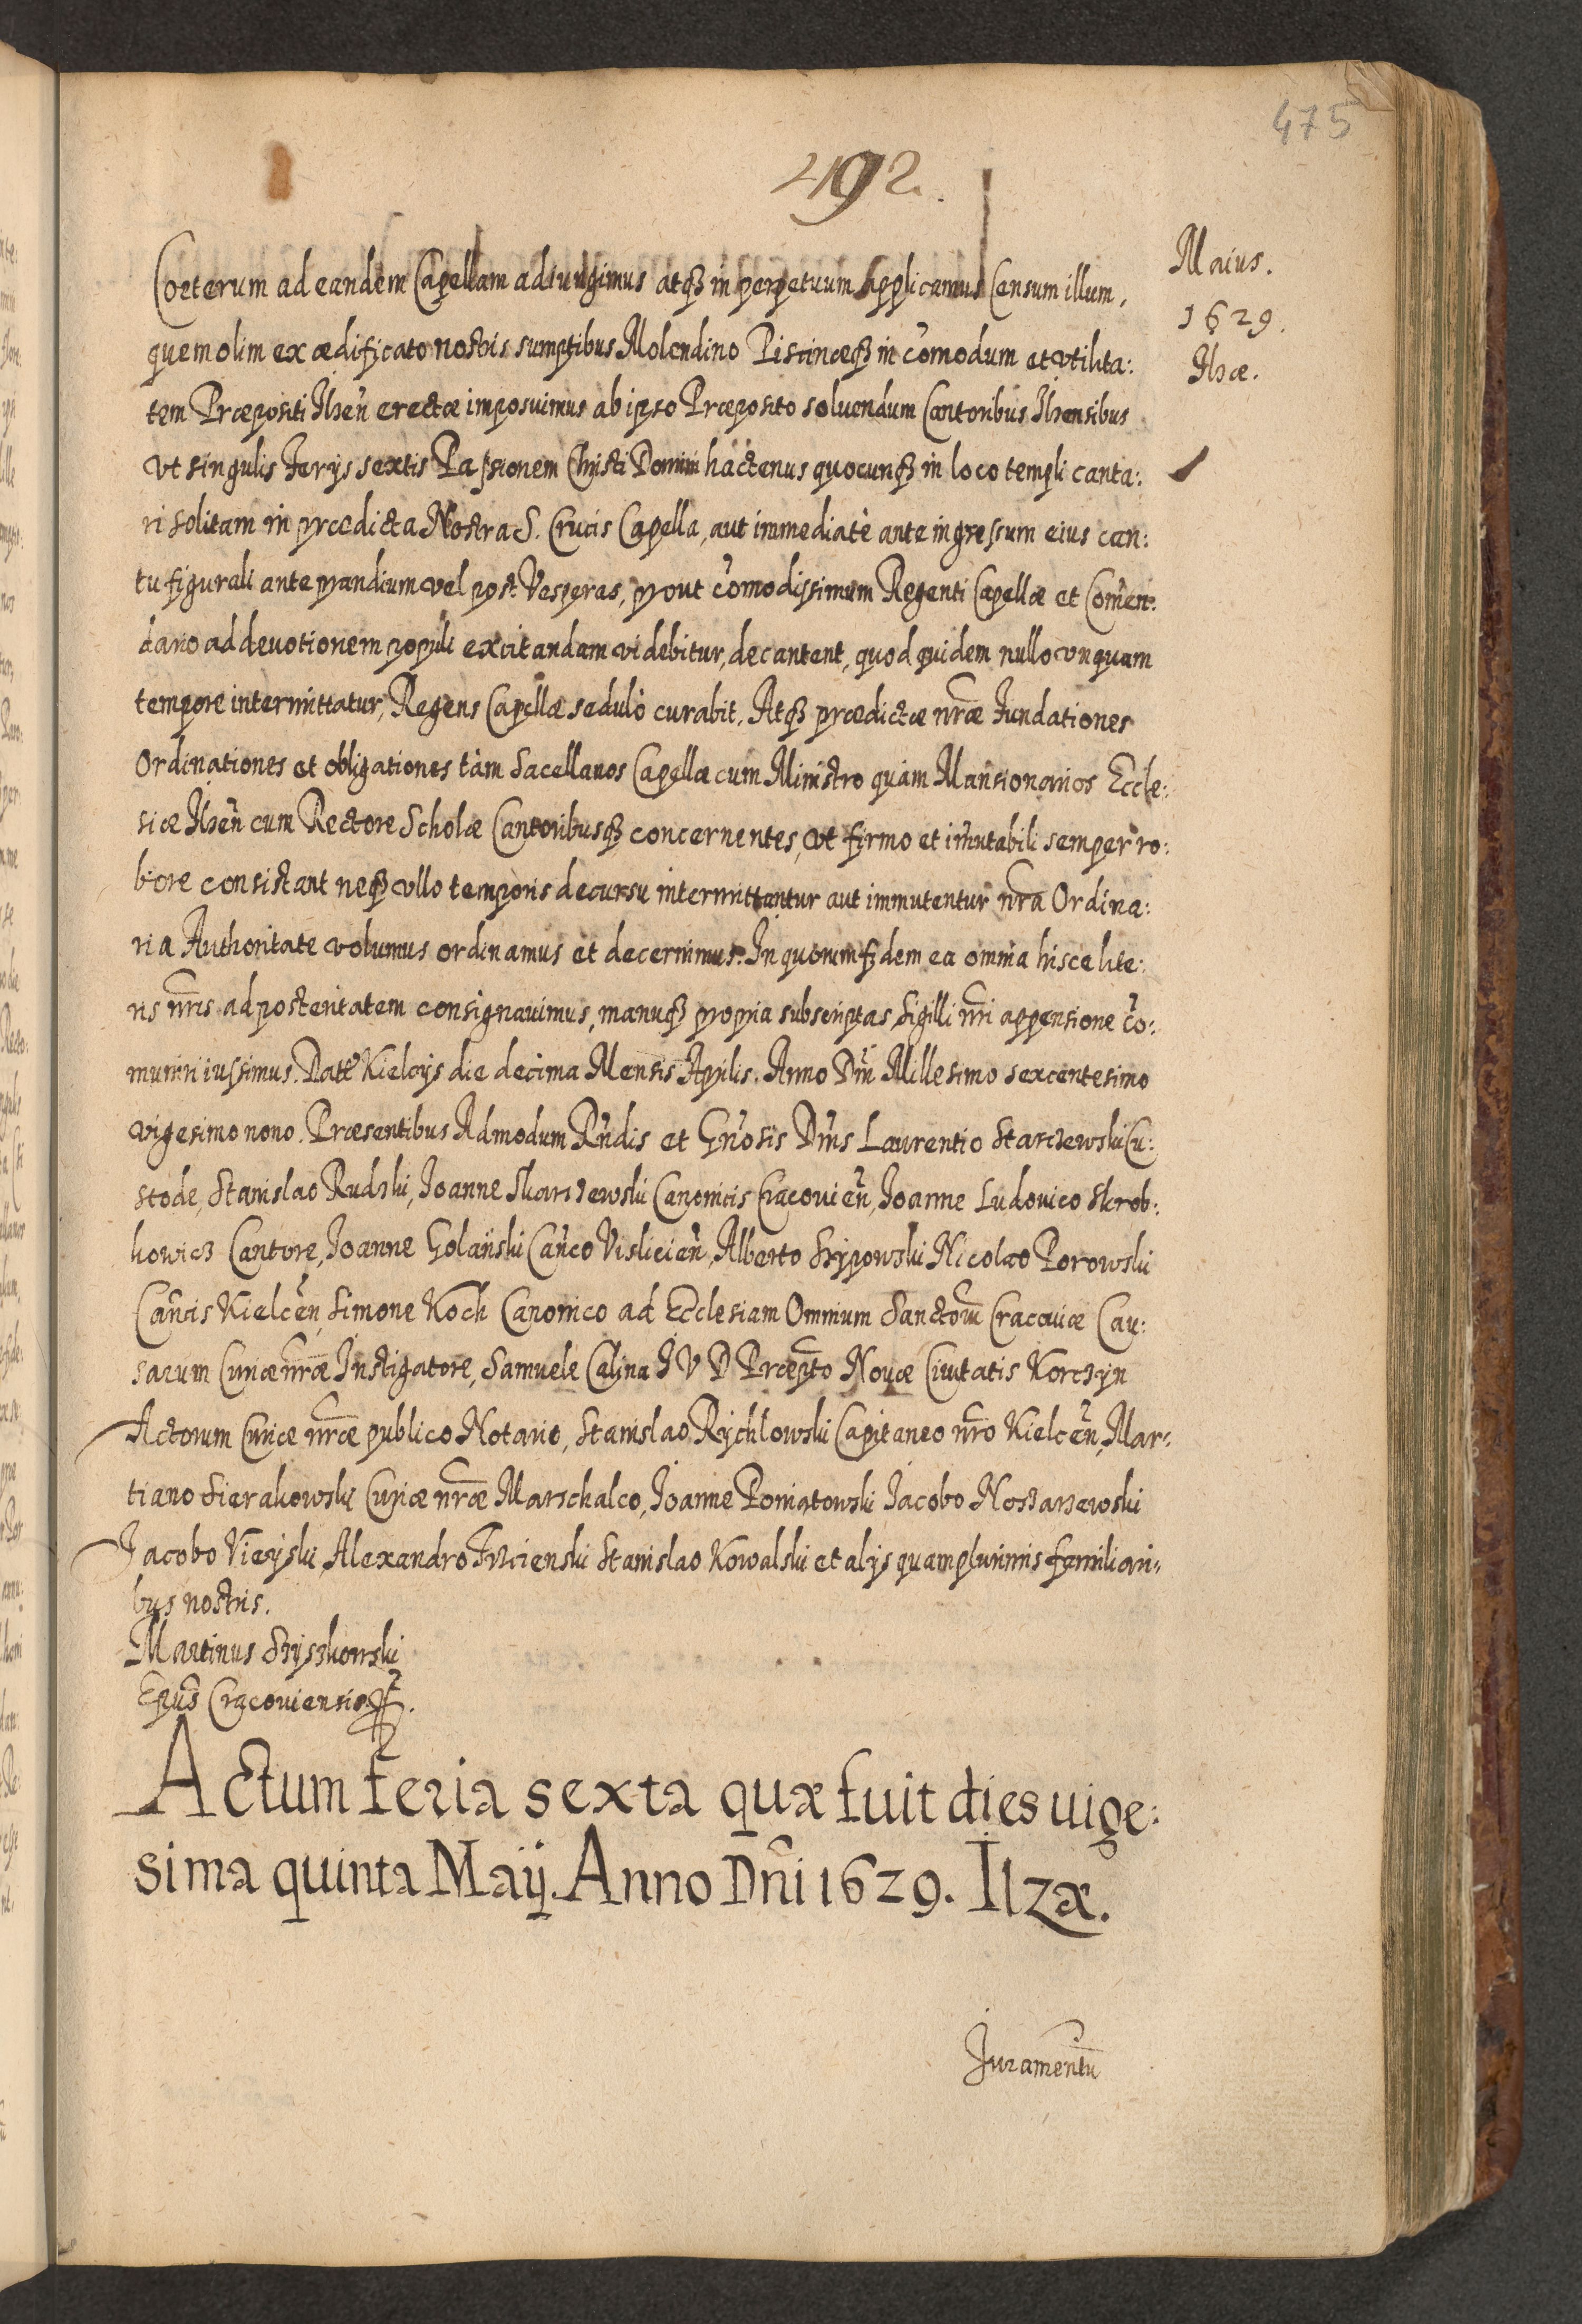 475
492.
Maius.
1629.
Ilzæ.
Cœterum ad eandem Capellam adiungimus atqꝫ in perpetuum applicamus Censum illum,
quem olim ex ædificato nostris sumptibus Molendino Piscinæqꝫ in com̃odum et vtilita:
tem Præpositi Ilzeñ erectæ imposuimus ab ipso Præposito soluendum Cantoribus Ilzensibus
vt singulis Ferijs sextis Passionem Christi Domini hactenus quocunqꝫ in loco templi canta:
ri solitam in prædicta Nostra S. Crucis Capella, aut immediatè ante ingressum eius can:
tu figurali ante prandium vel post Vesperas, prout com̃odissimum Regenti Capellæ et Com̃en:
dario ad deuotionem populi excitandam videbitur, decantent, quod quidem nullo vnquam
tempore intermittatur, Regens Capellæ sedulò curabit, Atqꝫ prædictæ nr̃æ Fundationes
Ordinationes et obligationes tàm Sacellanos Capellæ cum Ministro quàm Mansionarios Eccle:
siæ Ilzeñ cum Rectore Scholæ Cantoribusqꝫ concernentes, vt firmo et im̃utabili semper ro:
bore consistant neqꝫ vllo temporis decursu intermittantur aut immutentur nr̃a Ordina:
ria Authoritate volumus ordinamus et decernimus. In quorum fidem ea omnia hisce lite:
ris nr̃is ad posteritatem consignauimus, manuqꝫ propria subscriptas Sigilli nr̃i appensione co̅:
muniri iussimus. Datt Kielcijs die decima Mensis Aprilis. Anno Dni̅ Millesimo sexcentesimo
vigesimo nono. Præsentibus Admodum Rn̅dis et Gn̅osis Dn̅is Laurentio Starczewski Cu:
stode, Stanislao Rudzki, Joanne Skarszewski Canonicis Cracouieñ, Joanne Ludouico Skrob:
kowicz Cantore, Joanne Golański Can̅co Vislicieñ, Alberto Szypowski Nicolao Porowski
Can̅cis Kielceñ Simone Koch Canonico ad Ecclesiam Omnium Sanctoru̅ Cracouiæ Cau:
sarum Curiæ nr̃æ Instigatore, Samuele Calina I V D Præpto Nouæ Ciuitatis Korczyn
Actorum Curiæ nr̃æ publico Notario, Stanislao Rychlowski Capitaneo nr̃o Kielceñ, Mar:
tiano Sierakowski Curiæ nr̃æ Marschalco, Joanne Poniatowski Jacobo Noszarzewski
Jacobo Vieyski, Alexandro Stanislao Kowalski et alijs quamplurimis familiari:
bus nostris.
Martinus Szyszkowski
Epu̅s Cracouiensis.
Actum feria sexta quæ fuit dies uige:
sima quinta Maij. Anno Dn̅i 1629. Ilzæ.
Juramentu̅